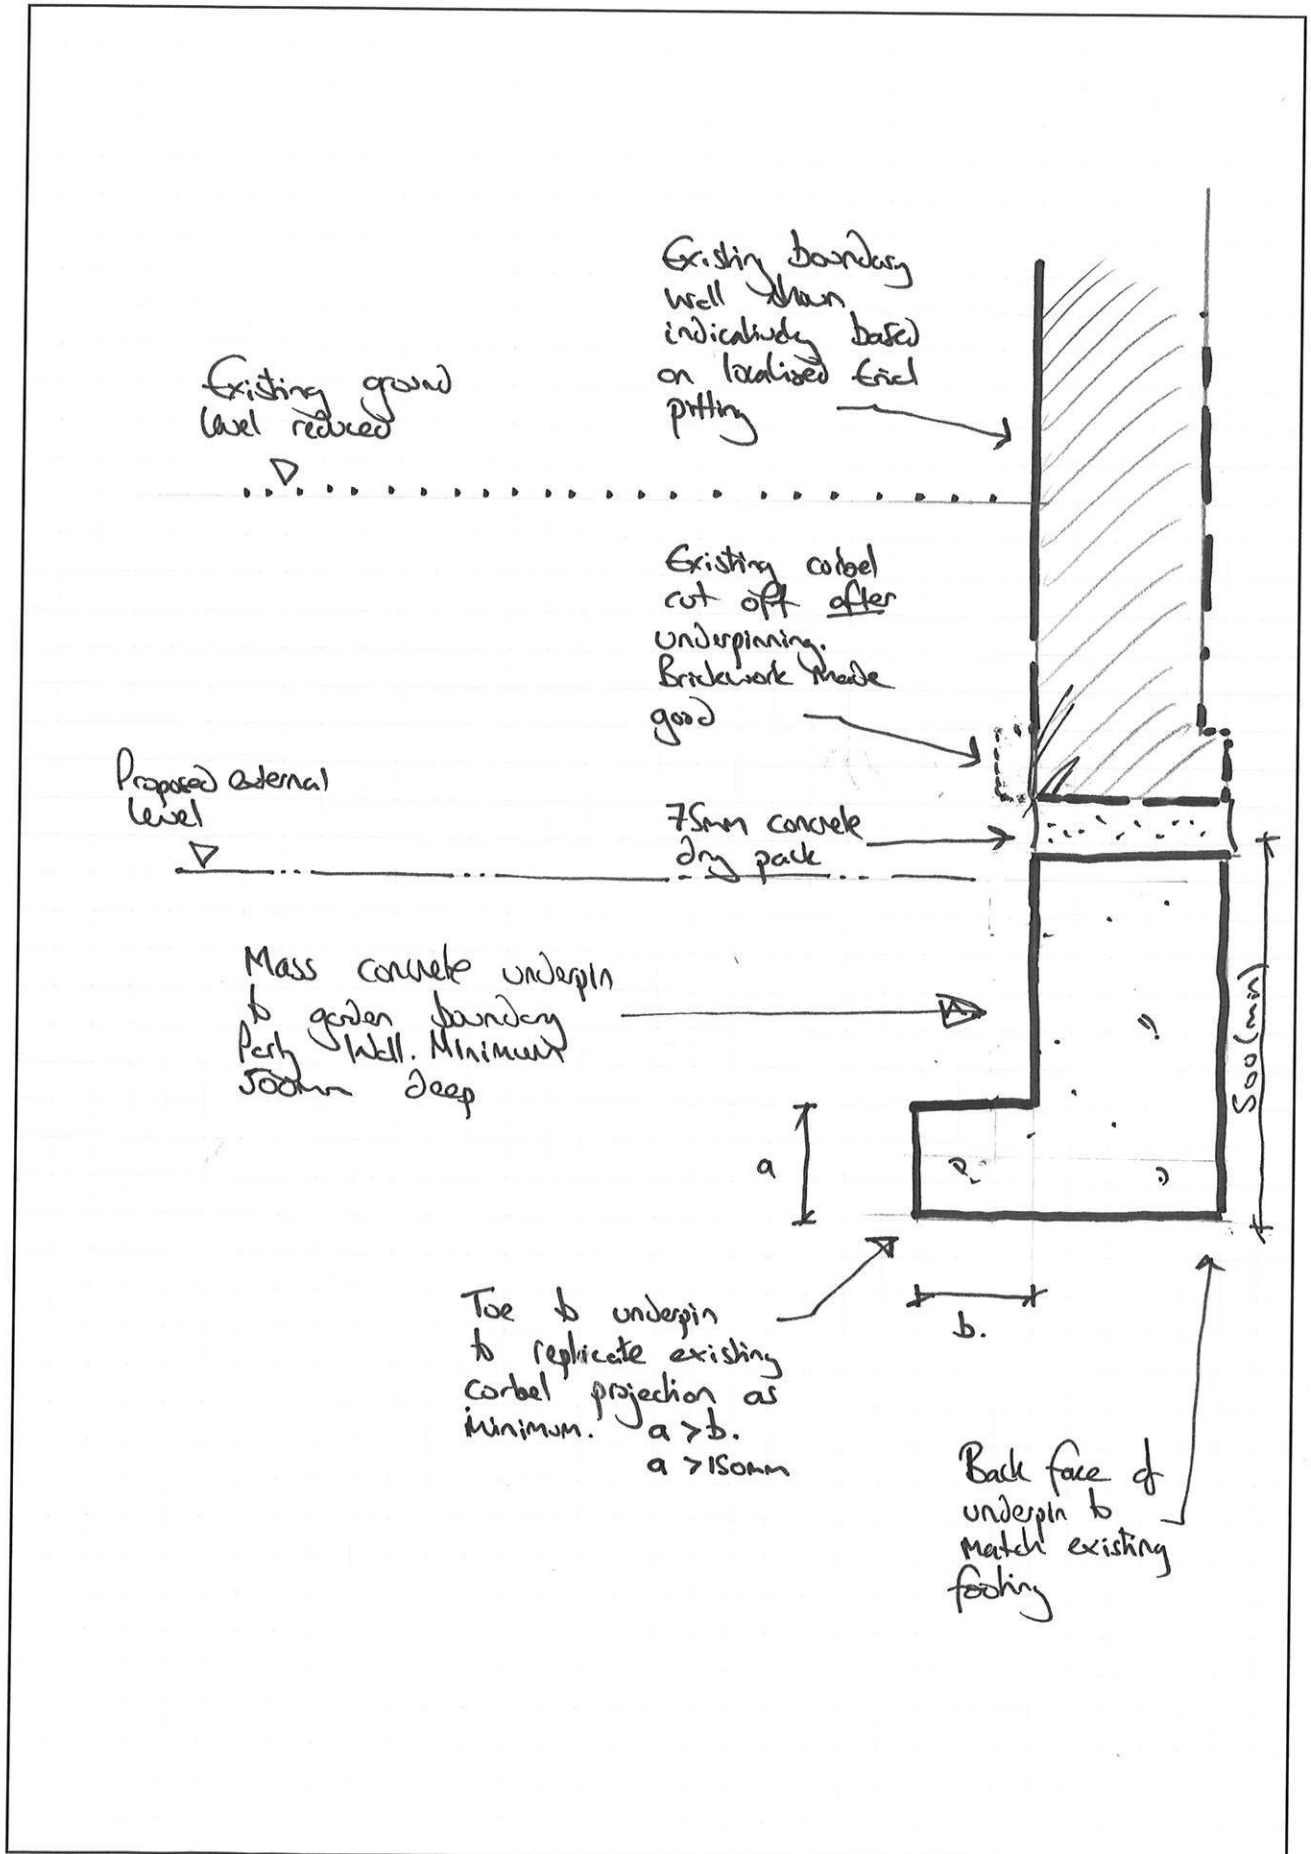 Existing boundary
wall shown
indicatively based
on localised trial
pitting
Existing ground
level reduced
Existing corbel
cut off after
underpinning.
Brickwork made
good
Proposed external
level
75mm concrete
dry pack
Mass concrete underpin
to garden boundary
Party Wall. Minimum
500mm deep
500(min)
a
b.
Toe to underpin
to replicate existing
corbel projection as
minimum. a > b.
a > 150mm
Back face of
underpin to
match existing
footing